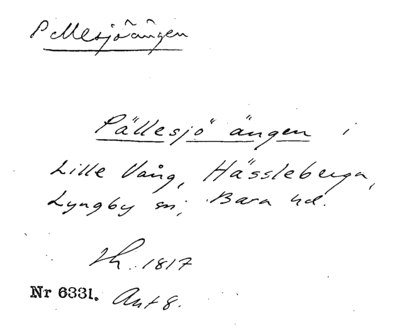 Pällesjöängen
Pällesjö ängen i
Lille Vång, Hässleberga,
Lyngby sn, Bara hd.
1817
Nr 6331. Ant 8.